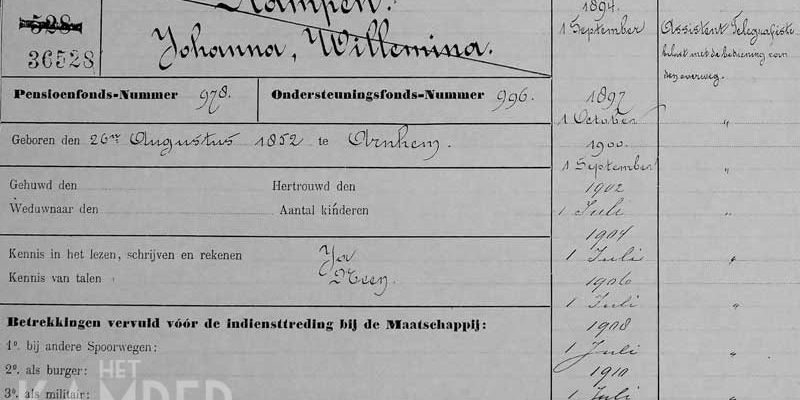 Kampen.
Johanna, Willemina.
528
36528
Pensioenfonds-Nummer 978.
Ondersteuningsfonds-Nummer 996.
Geboren den 26en Augustus 1852 te Arnhem.
Gehuwd den
Hertrouwd den
Weduwnaar den
Aantal kinderen
Kennis in het lezen, schrijven en rekenen Ja
Kennis van talen Neen.
Betrekkingen vervuld vóór de indiensttreding bij de Maatschappij:
1o. bij andere Spoorwegen:
2o. als burger:
3o. als militair:
HET
KAMPER
1894.
1 September Assistent Telegrafiste
belast met de bediening van
den overweg.
1897
1 October "
1900.
1 September "
1902
1 Juli "
1904
1 Juli "
1906
1 Juli "
1908
1 Juli "
1910
1 Juli "